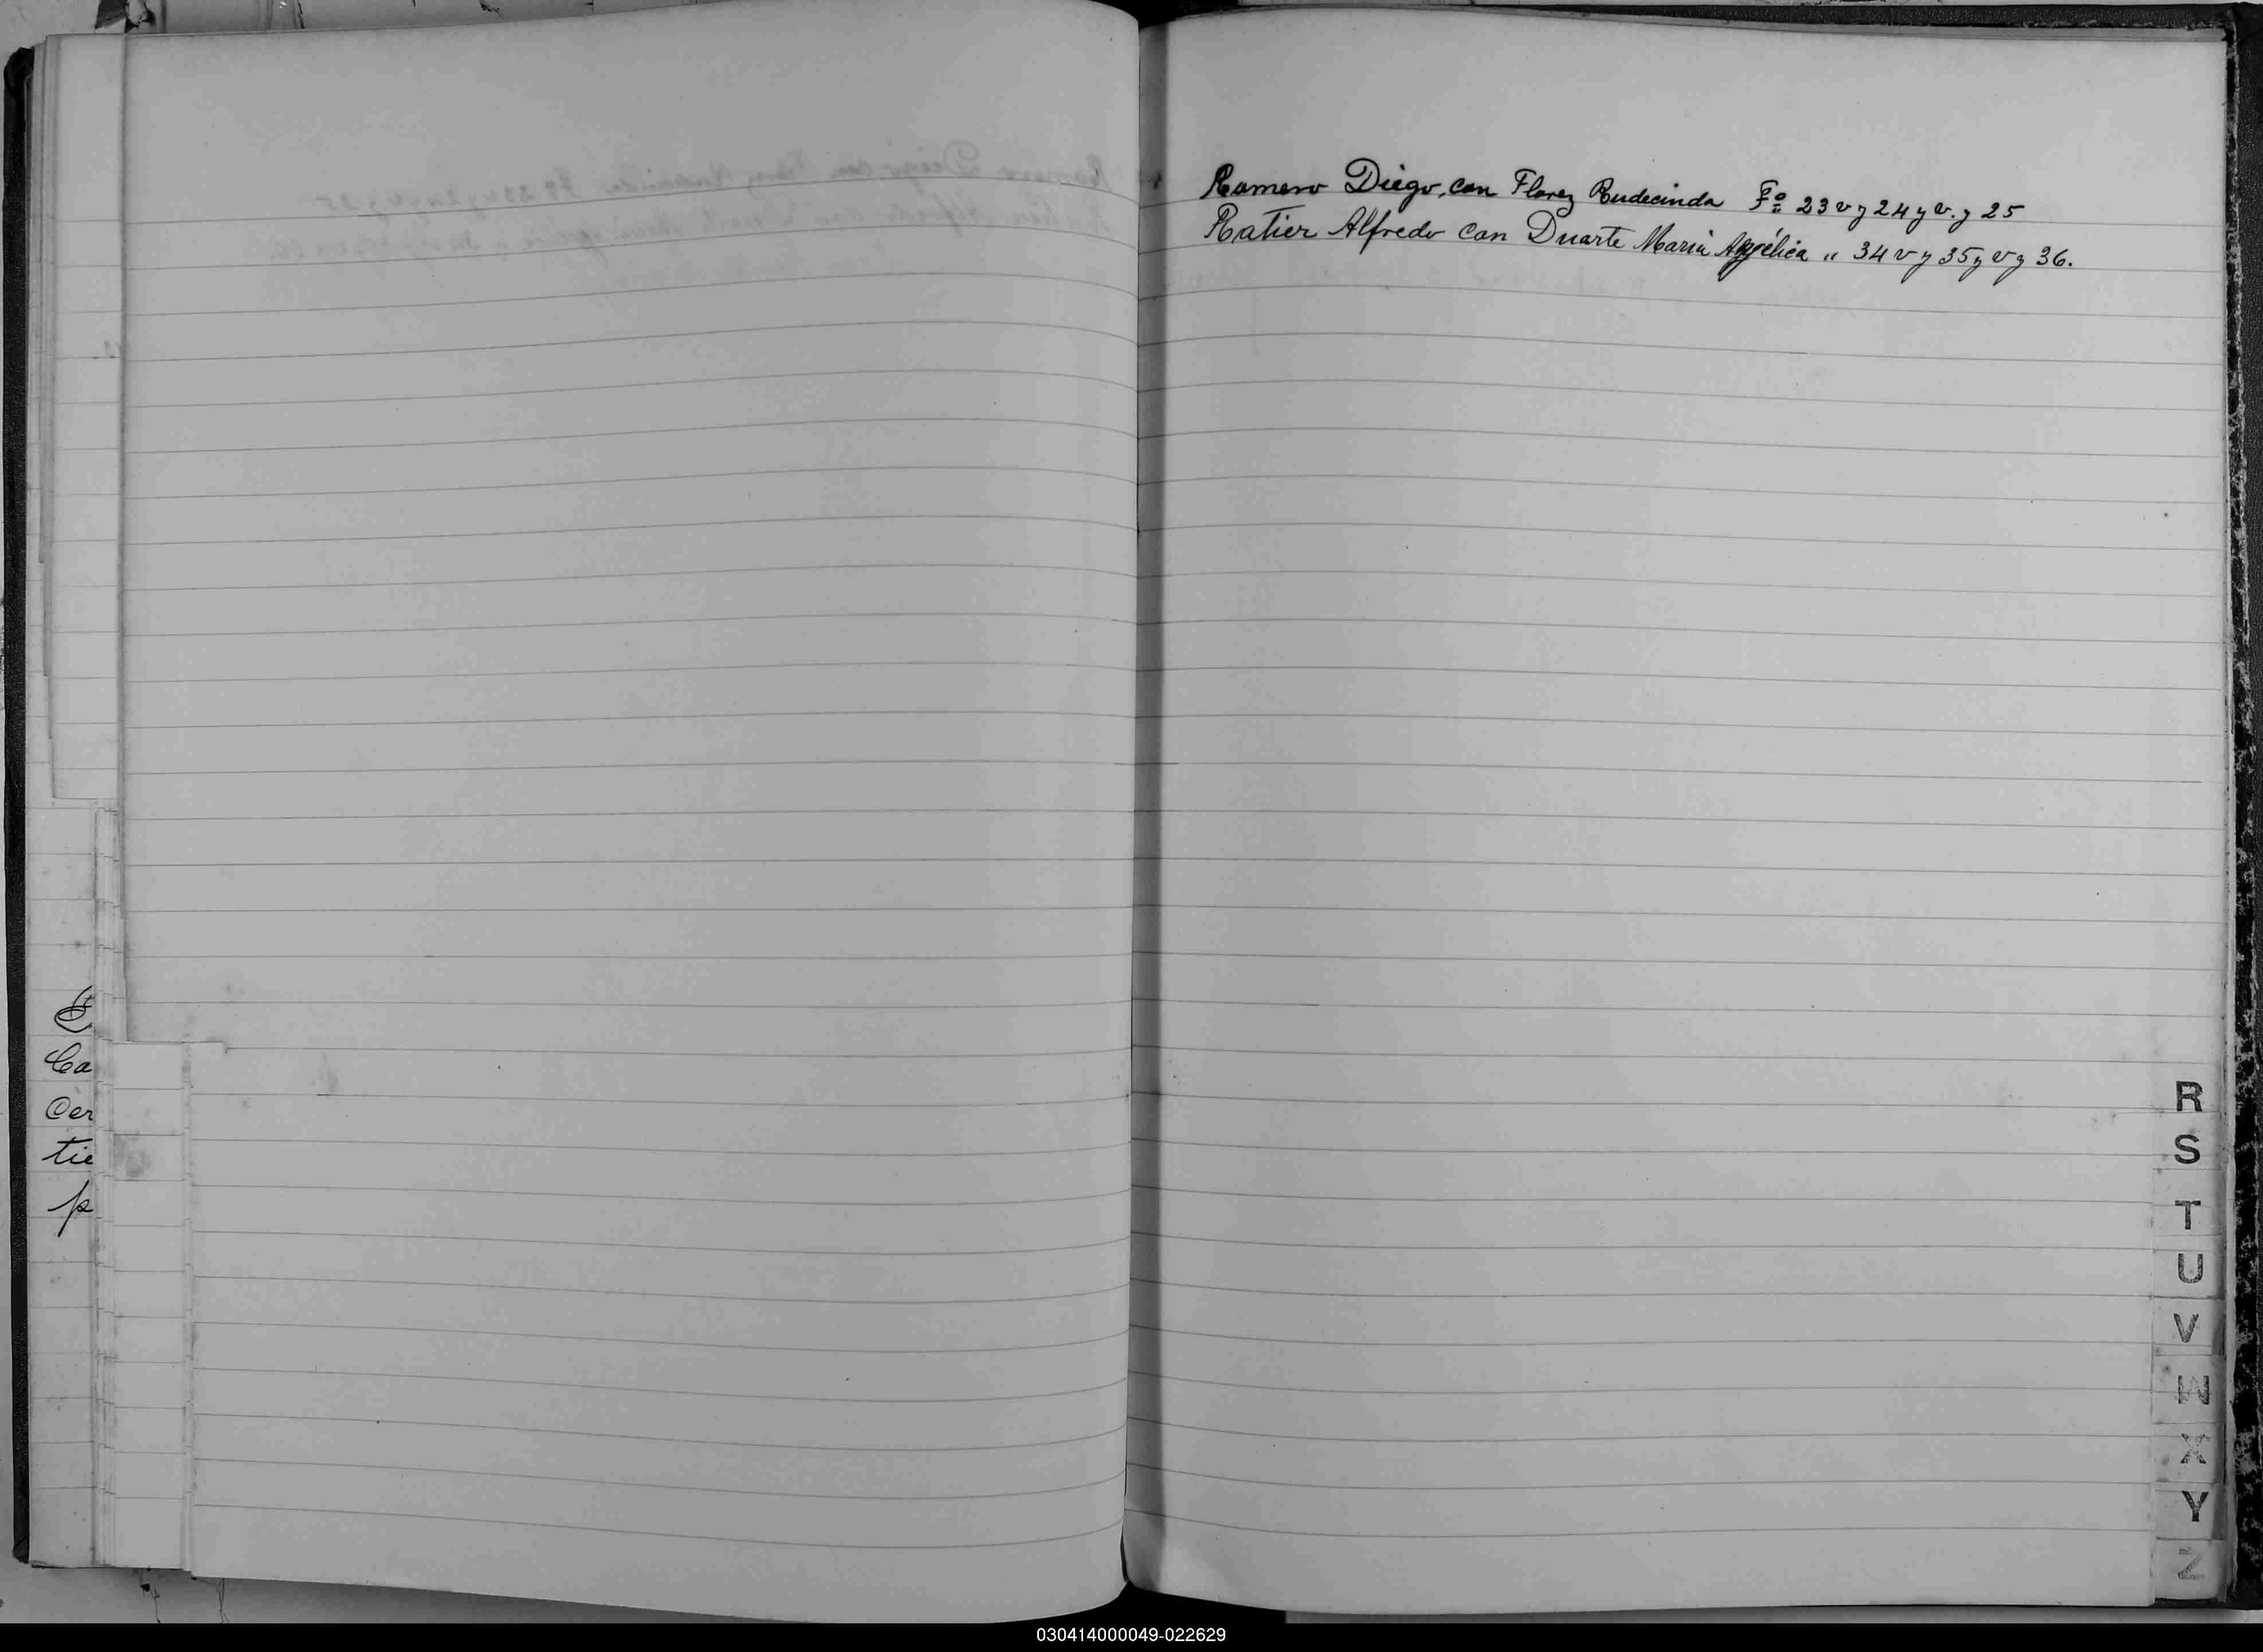 Romero Diego, con Florez Rudecinda Fº 23 v y 24 y v. y 25
Ratier Alfredo con Duarte Maria Angélica " 34 v y 35 y v y 36.
C
Ca
Cer
tie
p
R
S
T
U
V
W
X
Y
Z
030414000049-022629